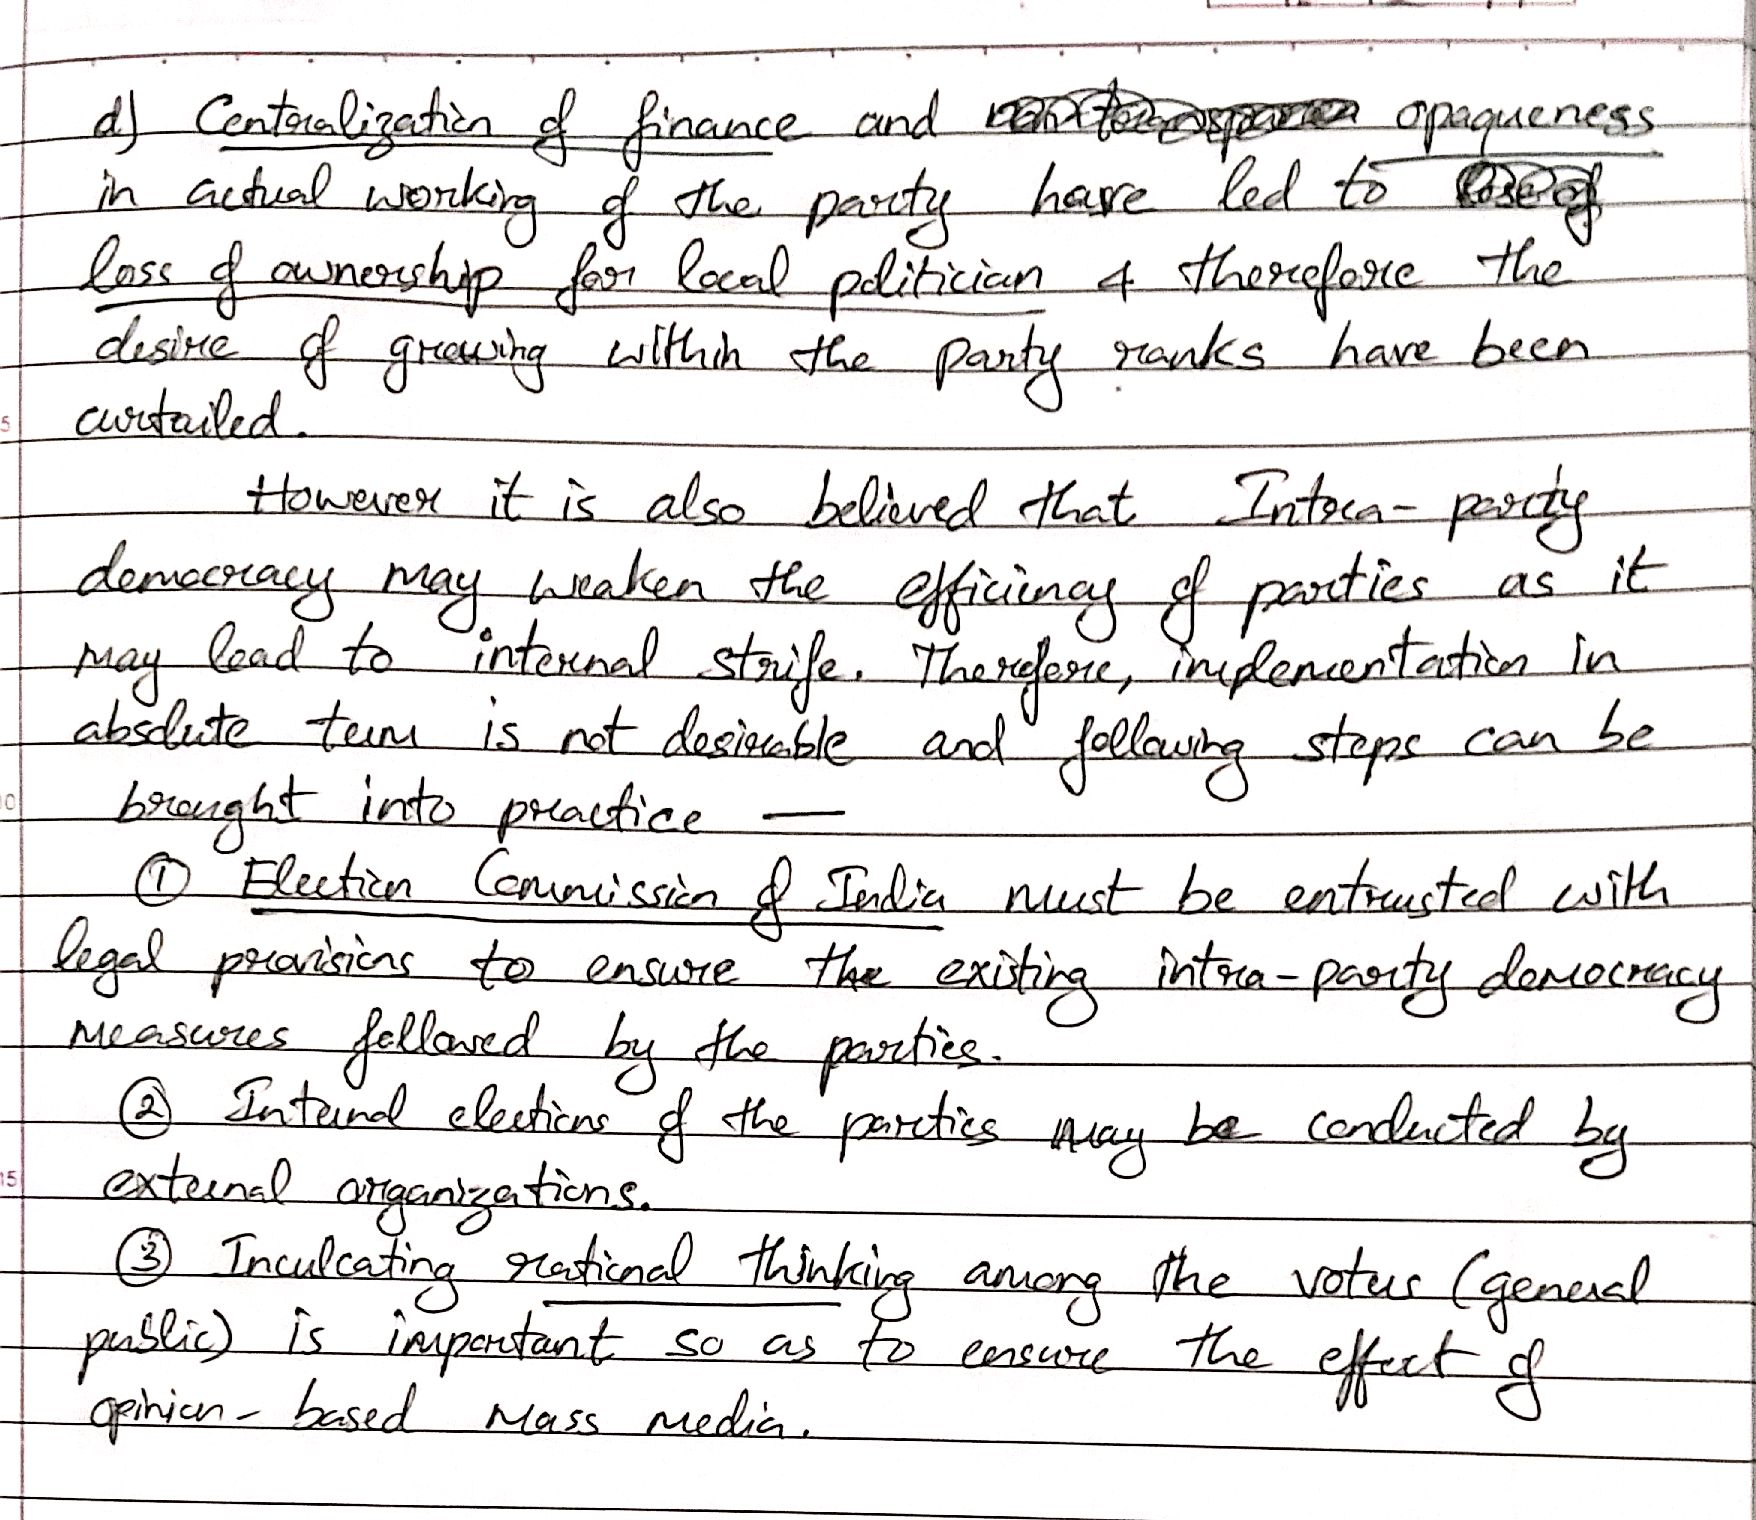 d) Centralization of finance and opaqueness
in actual working of the party have led to
loss of ownership for local politician & therefore the
desire of growing within the party ranks have been
curtailed.
However it is also believed that Intra-party
democracy may weaken the efficiency of parties as it
may lead to internal strife. Therefore, implementation in
absolute term is not desirable and following steps can be
brought into practice —
① Election Commission of India must be entrusted with
legal provisions to ensure the existing intra-party democracy
measures followed by the parties.
② Internal elections of the parties may be conducted by
external organizations.
③ Inculcating rational thinking among the voters (general
public) is important so as to ensure the effect of
opinion-based mass media.
5
10
15